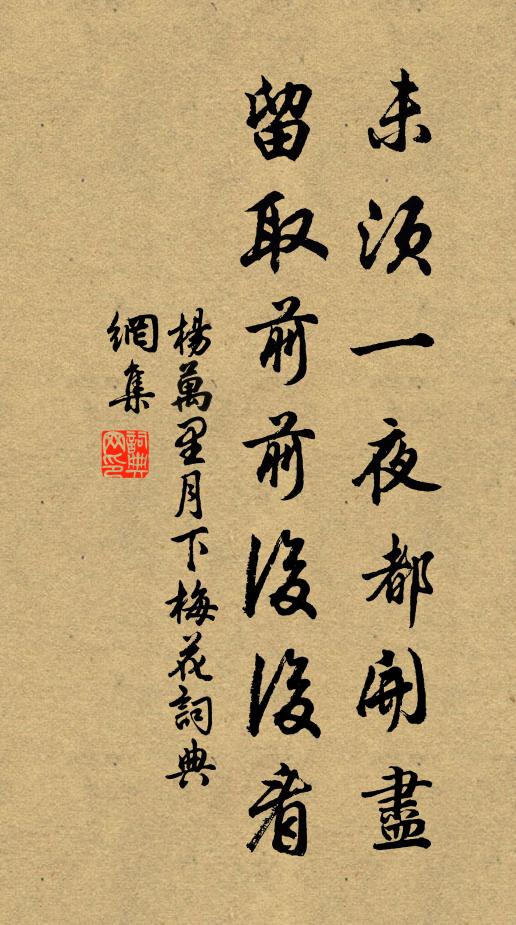 未須一夜都開盡
留取前前後後看
楊萬里月下梅花詞典
網集
詞典
网印